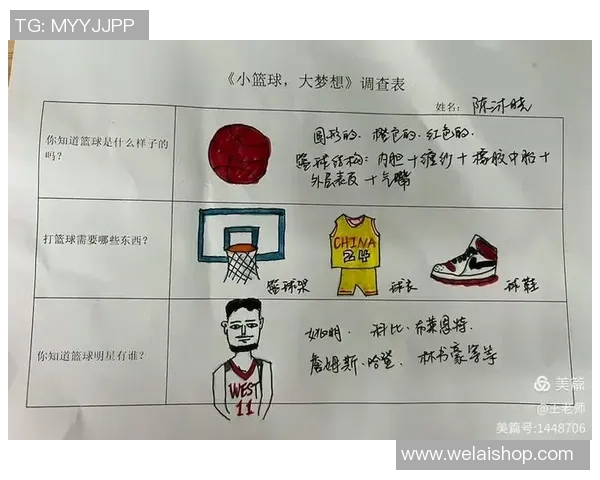 TG: MYYJJPP
《小篮球，大梦想》调查表
姓名：陈沐晓
你知道篮球是什么样子的吗？
圆形的、橙色的、红色的、
篮球结构：内胆+缠纱+橡胶中胎+
外层表皮+气嘴
打篮球需要哪些东西？
CHINA
24
篮球架
球衣
球鞋
你知道篮球明星有谁？
WEST
11
姚明、科比·布莱恩特、
詹姆斯·哈登、林书豪等等
美篇
@王老师
美篇号:1448706
www.welaishop.com